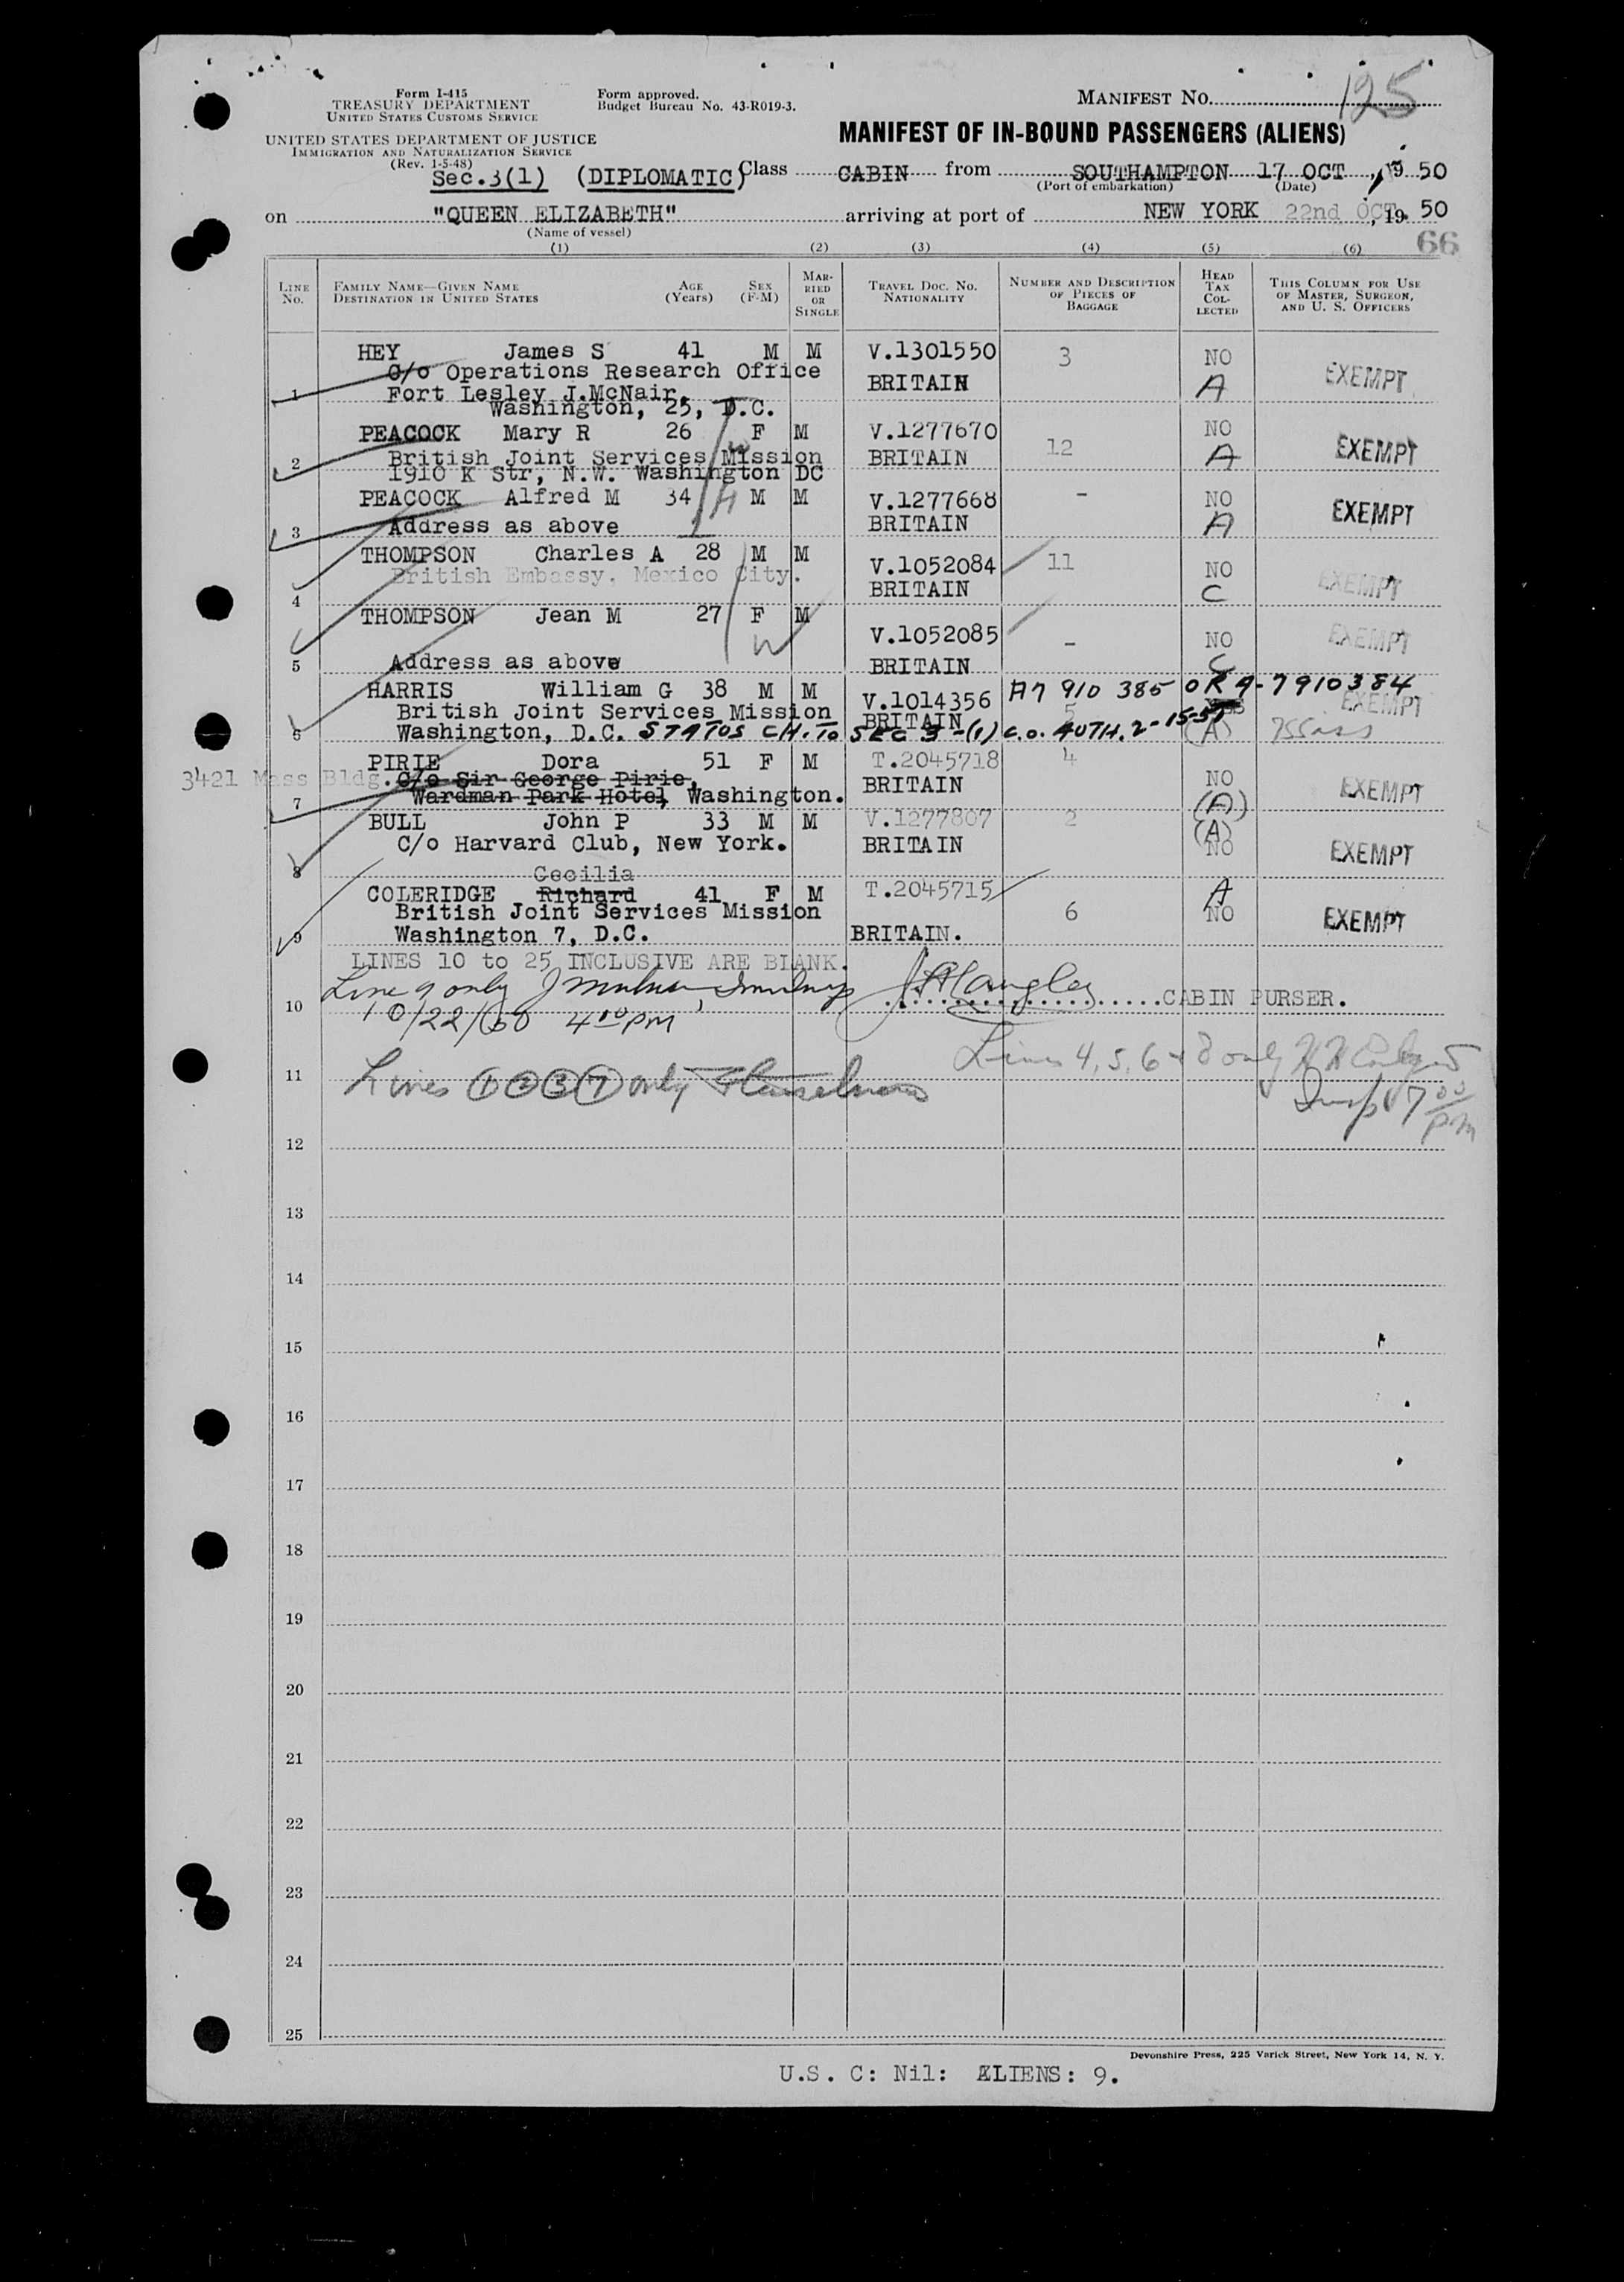 Form I-415
TREASURY DEPARTMENT
UNITED STATES CUSTOMS SERVICE
UNITED STATES DEPARTMENT OF JUSTICE
IMMIGRATION AND NATURALIZATION SERVICE
(Rev. 1-5-48)
Form approved.
Budget Bureau No. 43-R019-3.
MANIFEST NO. 125
MANIFEST OF IN-BOUND PASSENGERS (ALIENS)
Sec.3(1) (DIPLOMATIC) Class CABIN from SOUTHAMPTON 17 OCT, 19 50
(Port of embarkation) (Date)
on "QUEEN ELIZABETH" arriving at port of NEW YORK 22nd OCT. , 19 50
(Name of vessel)
66
(1) (2) (3) (4) (5) (6)
LINE NO. FAMILY NAME—GIVEN NAME DESTINATION IN UNITED STATES AGE (Years) SEX (F-M) MARRIED OR SINGLE TRAVEL DOC. NO. NATIONALITY NUMBER AND DESCRIPTION OF PIECES OF BAGGAGE HEAD TAX COLLECTED THIS COLUMN FOR USE OF MASTER, SURGEON, AND U. S. OFFICERS
HEY James S 41 M M V.1301550 3 NO EXEMPT
C/o Operations Research Office
1 Fort Lesley J.McNair, BRITAIN A
Washington, 25, D.C.
PEACOCK Mary R 26 F M V.1277670 12 NO EXEMPT
2 British Joint Services Mission BRITAIN A
1910 K Str, N.W. Washington DC
W
PEACOCK Alfred M 34 H M M V.1277668 - NO EXEMPT
3 Address as above BRITAIN A
THOMPSON Charles A 28 M M V.1052084 11 NO EXEMPT
British Embassy, Mexico City.
4 BRITAIN C
THOMPSON Jean M 27 F M V.1052085 - NO EXEMPT
W
5 Address as above BRITAIN C
HARRIS William G 38 M M V.1014356 A7 910 385 OR A-7910384
British Joint Services Mission BRITAIN 5 EXEMPT
6 Washington, D.C. STATUS CH. TO SEC 3-(1) C.O. AUTH. 2-15-51 (A)
PIRIE Dora 51 F M T.2045718 4 NO EXEMPT
3421 Mass Bldg. C/o Sir George Pirie, BRITAIN
7 Wardman Park Hotel, Washington. (A)
BULL John P 33 M M V.1277807 2 (A) EXEMPT
C/o Harvard Club, New York. BRITAIN NO
8
Cecilia
COLERIDGE Richard 41 F M T.2045715 A
British Joint Services Mission 6 NO EXEMPT
9 Washington 7, D.C. BRITAIN.
LINES 10 to 25 INCLUSIVE ARE BLANK.
Line 9 only
10 CABIN PURSER.
10/22/50 4 00 PM
Lines 4, 5, 6 & 8 only
11 Lines 1 2 3 7 only
Insp 7 00 PM
12
13
14
15
16
17
18
19
20
21
22
23
24
25
Devonshire Press, 225 Varick Street, New York 14, N. Y.
U.S. C: Nil: ALIENS: 9.